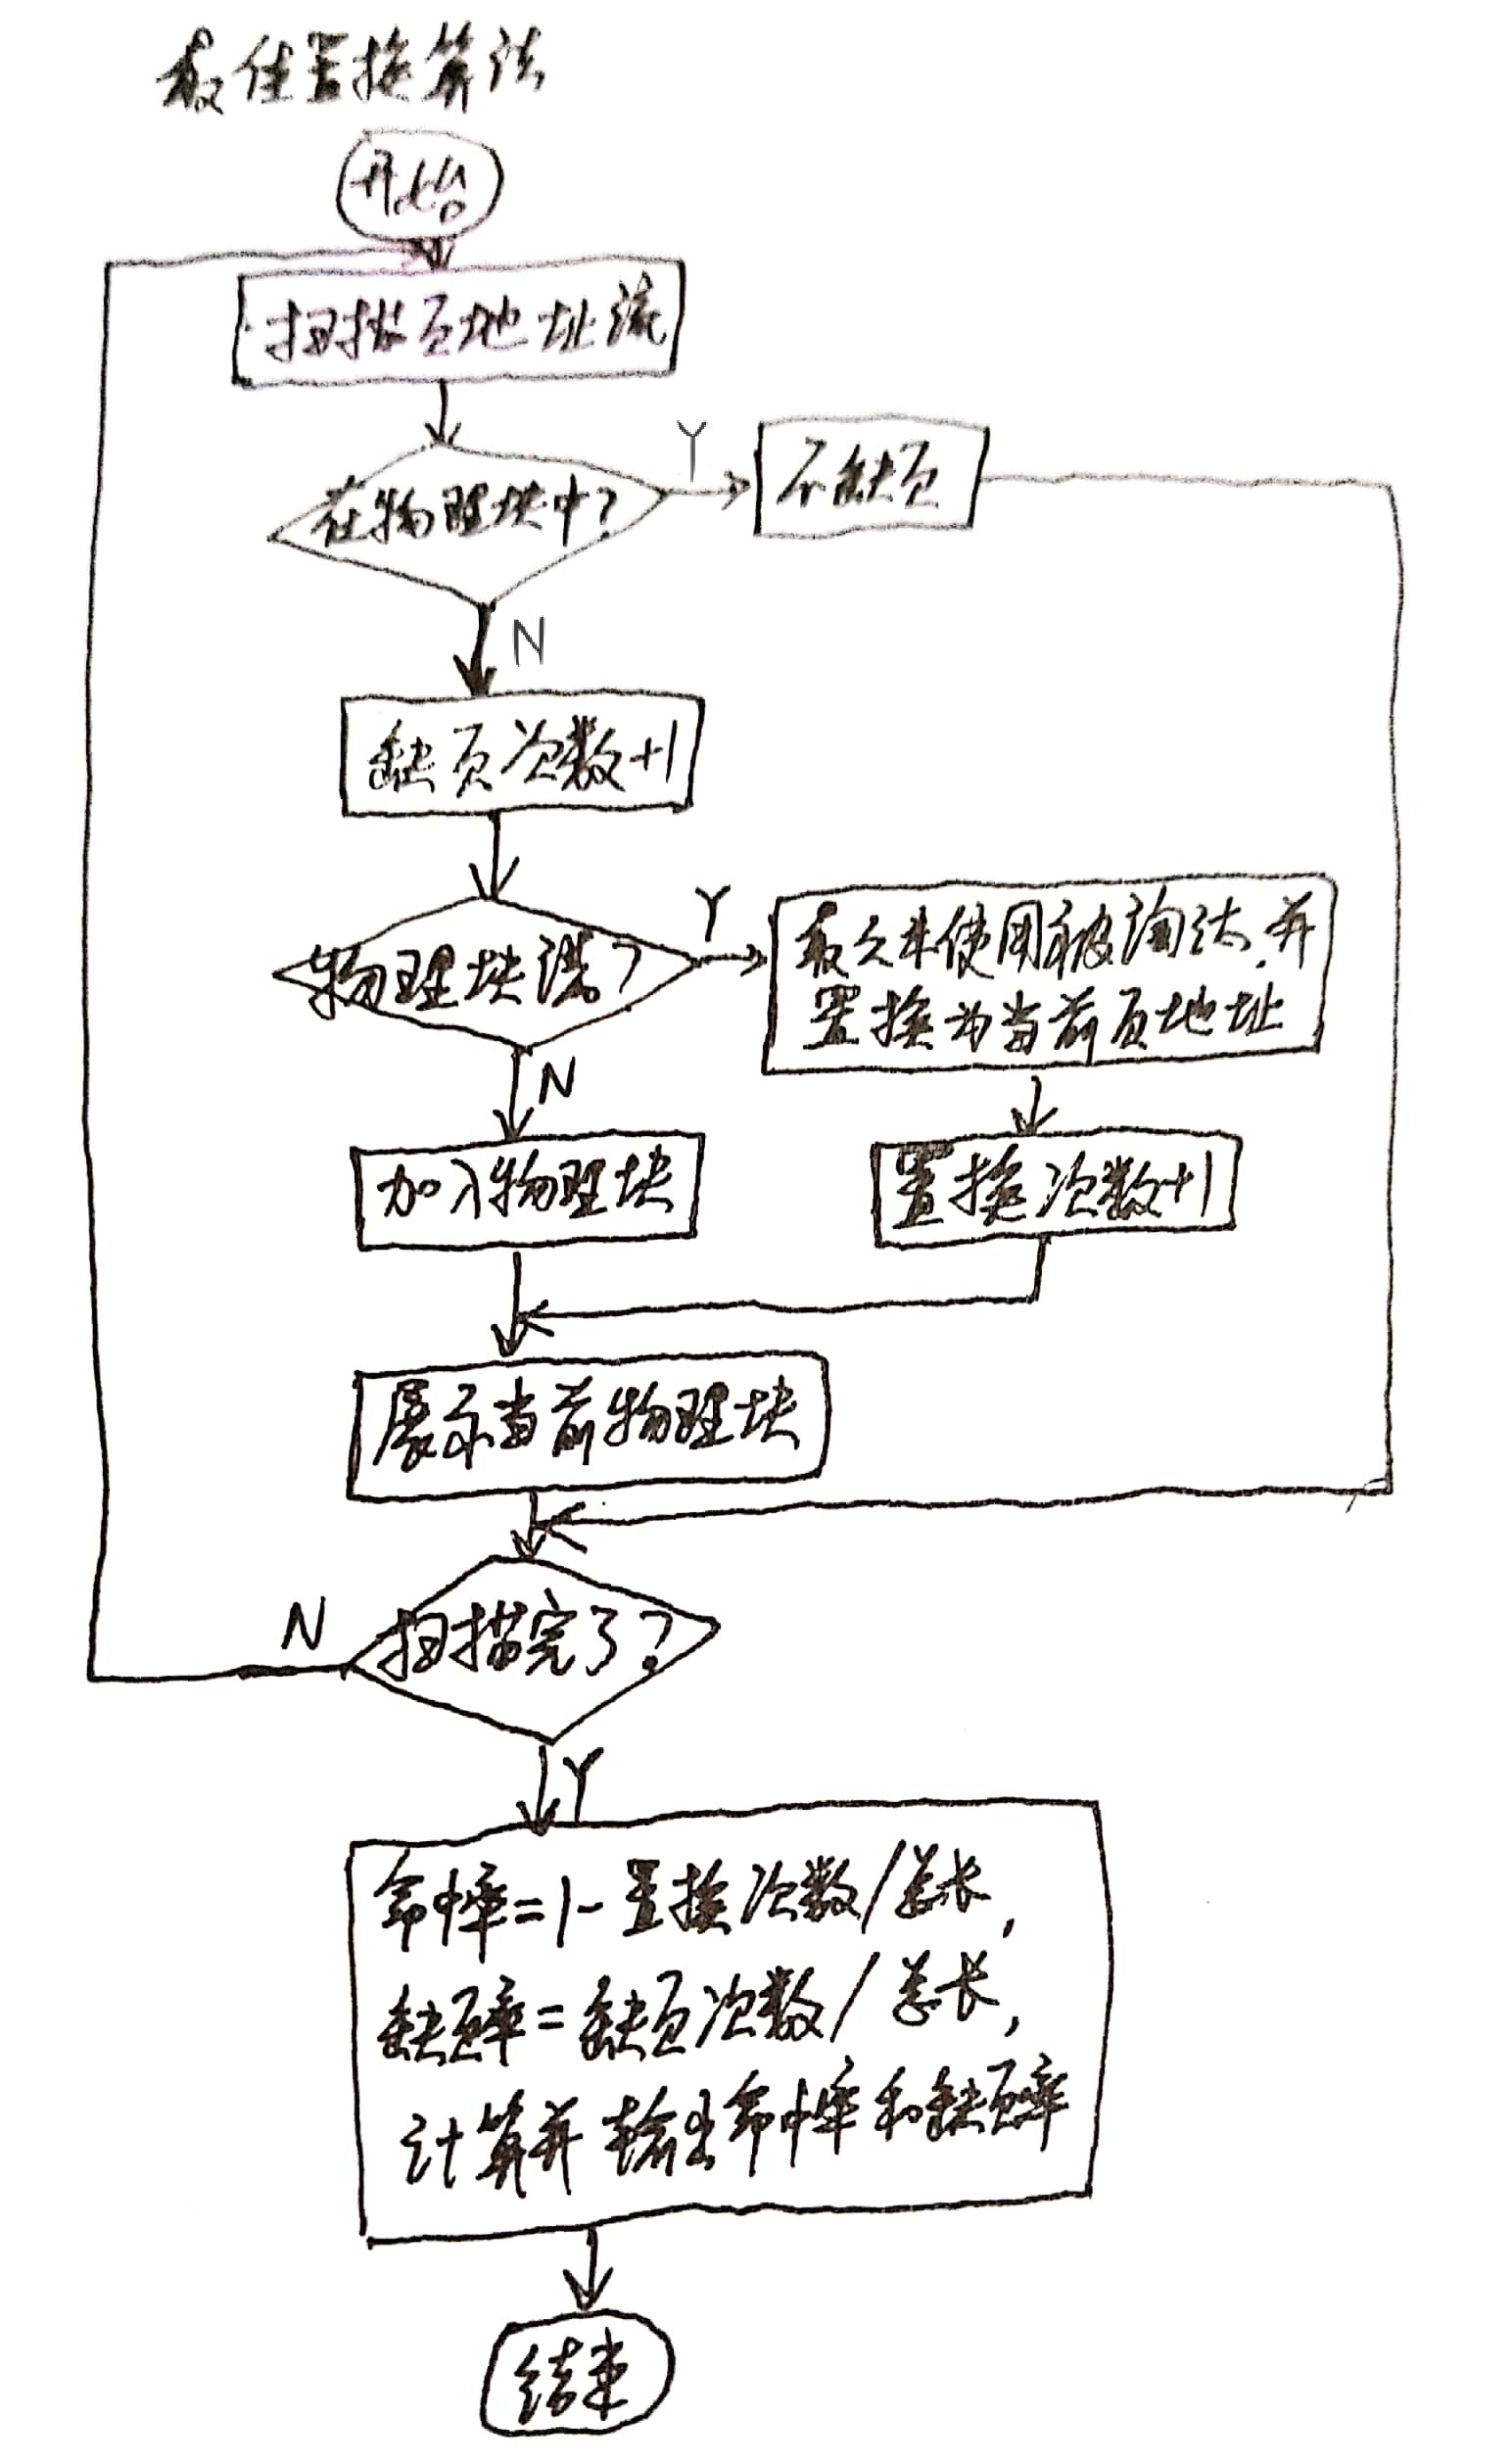 最佳置换算法
开始
扫描页地址流
在物理块中?
Y
不缺页
N
缺页次数+1
物理块满?
Y
最久未使用被淘汰,并
置换为当前页地址
N
加入物理块
置换次数+1
展示当前物理块
扫描完了?
N
Y
命中率=1-置换次数/总长,
缺页率=缺页次数/总长,
计算并输出命中率和缺页率
结束